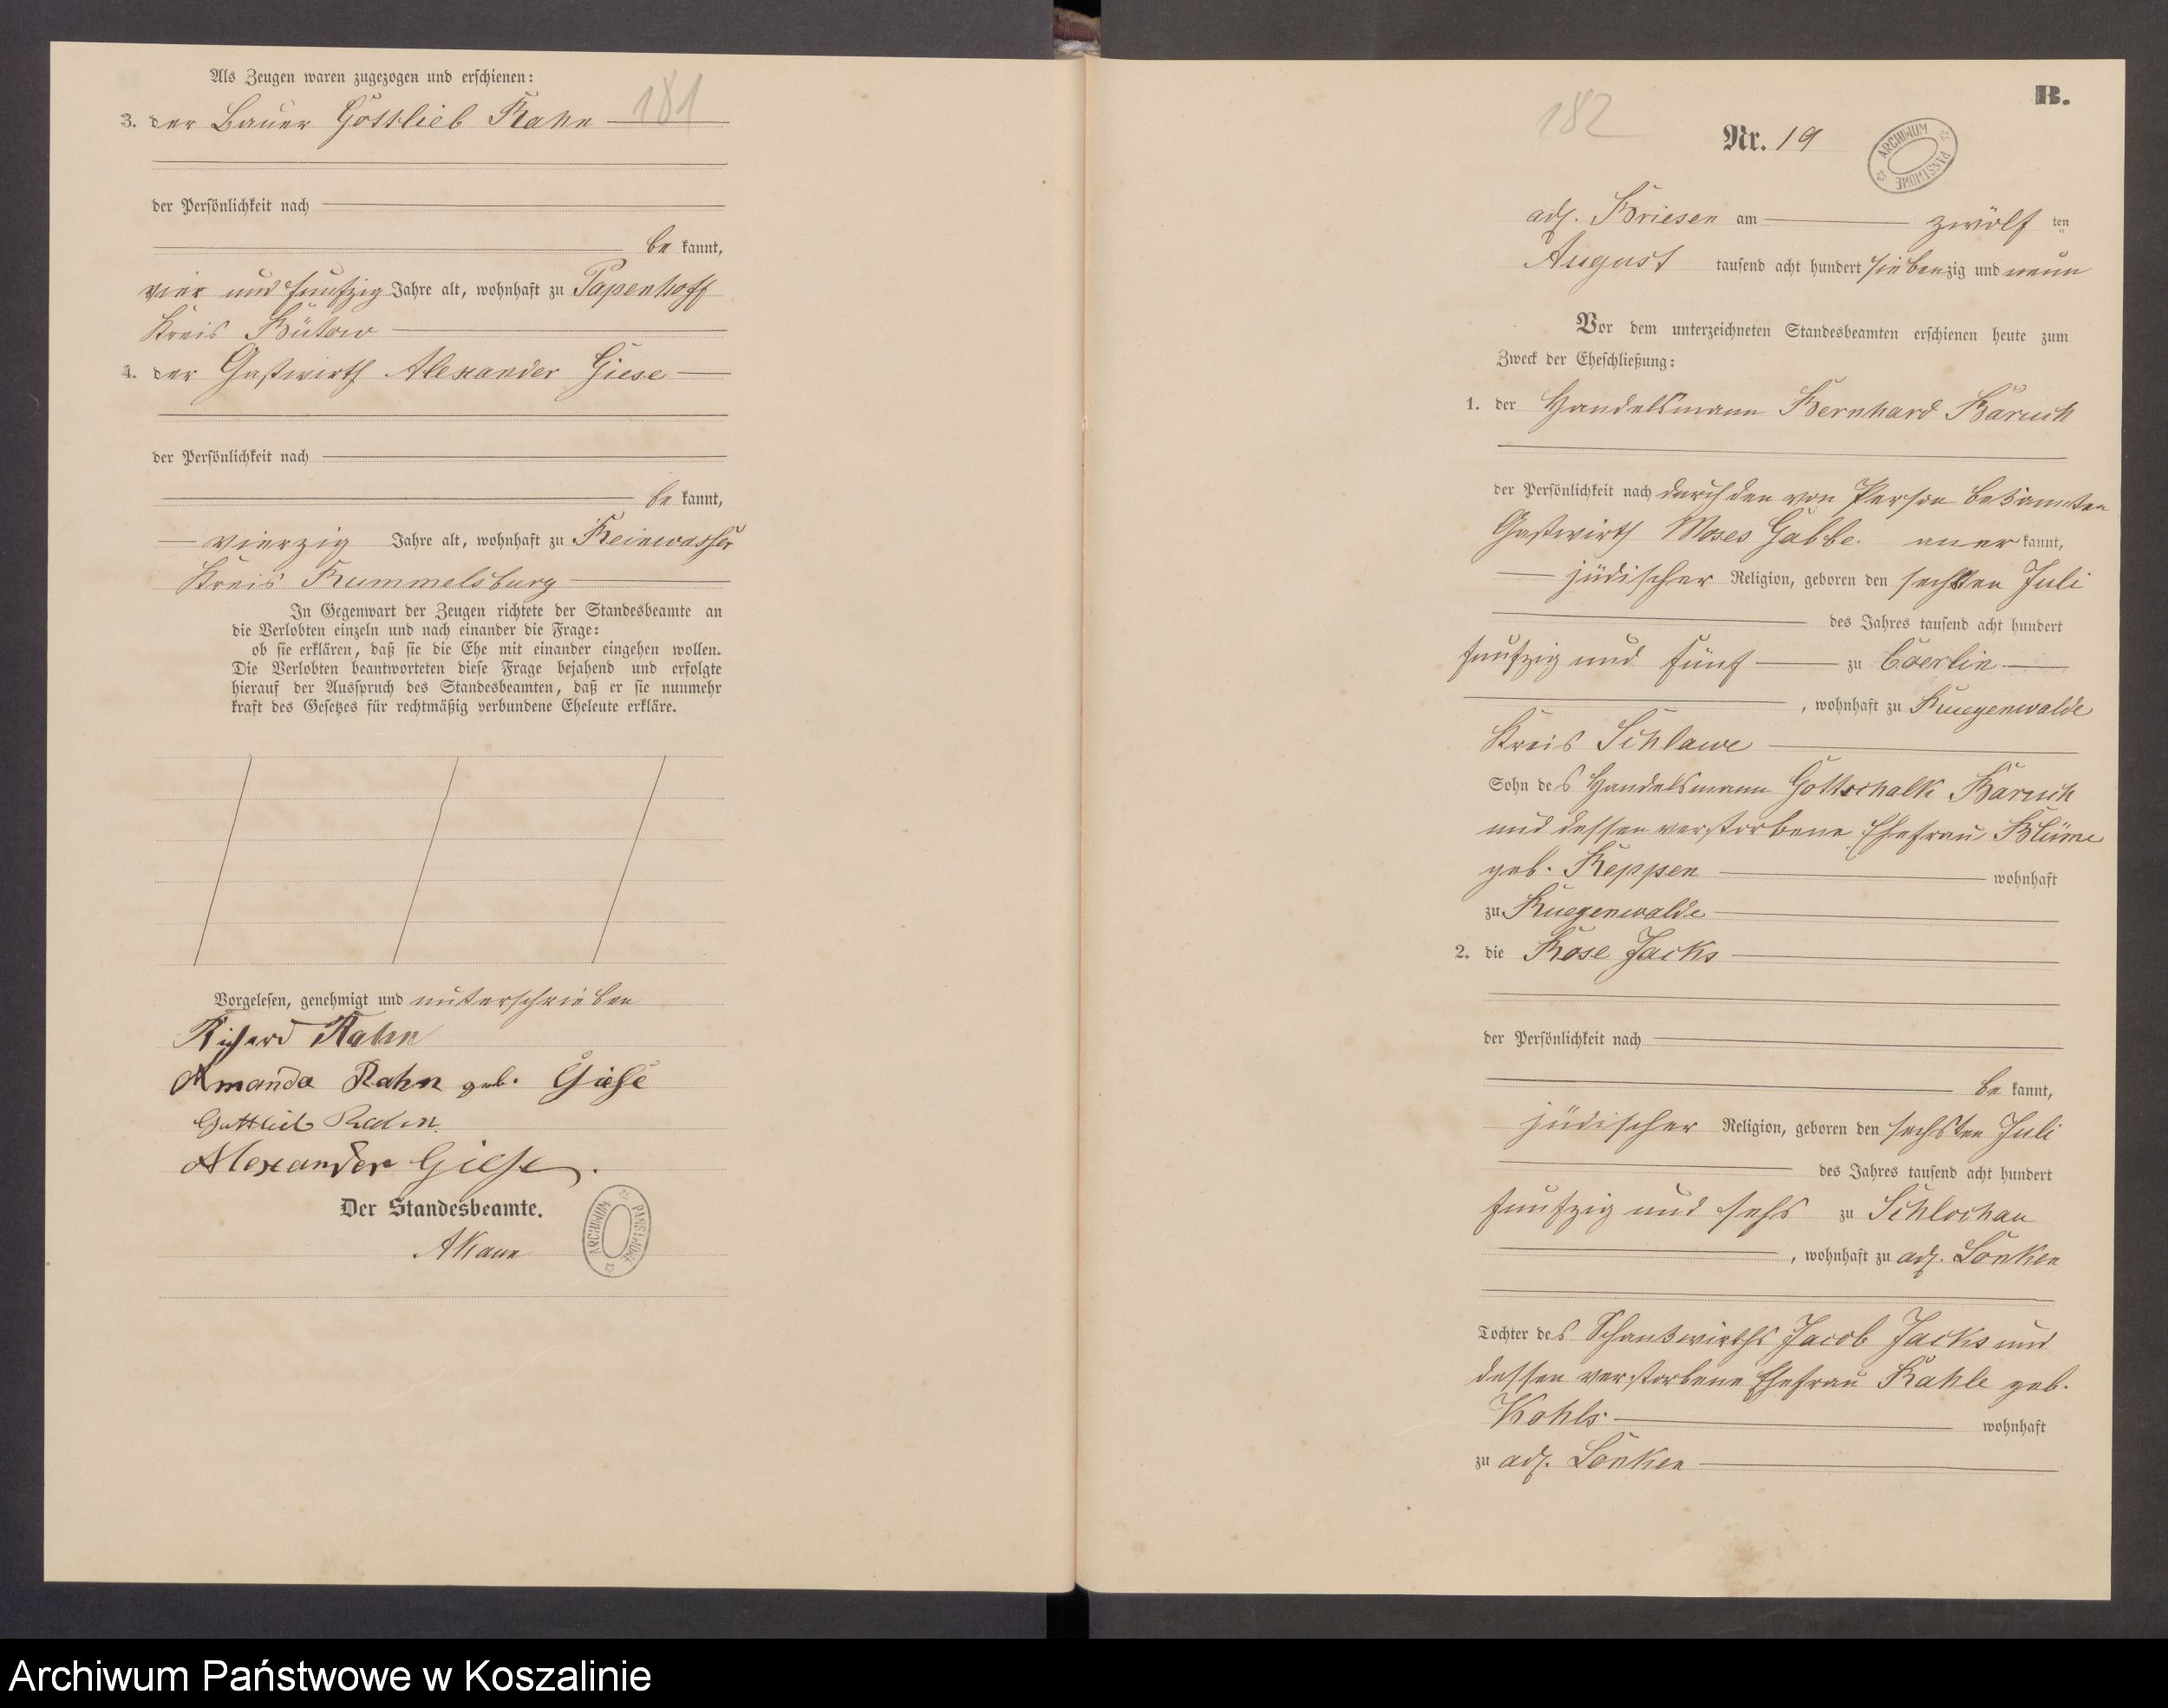 Als Zeugen waren zugezogen und erschienen:
181
3. der Bauer Gottlieb Rahn
der Persönlichkeit nach
be kannt,
vier und funfzig Jahre alt, wohnhaft zu Papenhoff
Kreis Bütow
4. der Gastwirth Alexander Giese
der Persönlichkeit nach
be kannt,
vierzig Jahre alt, wohnhaft zu Reinwasser
Kreis Rummelsburg
In Gegenwart der Zeugen richtete der Standesbeamte an
die Verlobten einzeln und nach einander die Frage:
ob sie erklären, daß sie die Ehe mit einander eingehen wollen.
Die Verlobten beantworteten diese Frage bejahend und erfolgte
hierauf der Ausspruch des Standesbeamten, daß er sie nunmehr
kraft des Gesetzes für rechtmäßig verbundene Eheleute erkläre.
Vorgelesen, genehmigt und unterschrieben
Richard Rahn
Amanda Rahn geb. Giese
Gottlieb
Alexander Giese.
Der Standesbeamte.
ARCHIWUM PAŃSTWOWE
B.
182
Nr. 19
ARCHIWUM PAŃSTWOWE
adl. Briesen am zwölf ten
August tausend acht hundert siebenzig und neun
Vor dem unterzeichneten Standesbeamten erschienen heute zum
Zweck der Eheschließung:
1. der Handelsmann Bernhard Baruch
der Persönlichkeit nach durch den von Person bekannten
Gastwirth Moses Gabbe anerkannt,
jüdischer Religion, geboren den sechsten Juli
des Jahres tausend acht hundert
funfzig und fünf zu Coerlin
, wohnhaft zu Ruegenwalde
Kreis Schlawe
Sohn des Handelsmann Gottschalk Baruch
und dessen verstorbene Ehefrau Blüme
geb. Reppen wohnhaft
zu Ruegenwalde
2. die Rose Jacks
der Persönlichkeit nach
be kannt,
jüdischer Religion, geboren den sechsten Juli
des Jahres tausend acht hundert
funfzig und sechs zu Schlochau
, wohnhaft zu adl. Lonken
Tochter des Schankwirths Jacob Jacks und
dessen verstorbene Ehefrau Rahle geb.
Kohls wohnhaft
zu adl. Lonken
Archiwum Państwowe w Koszalinie